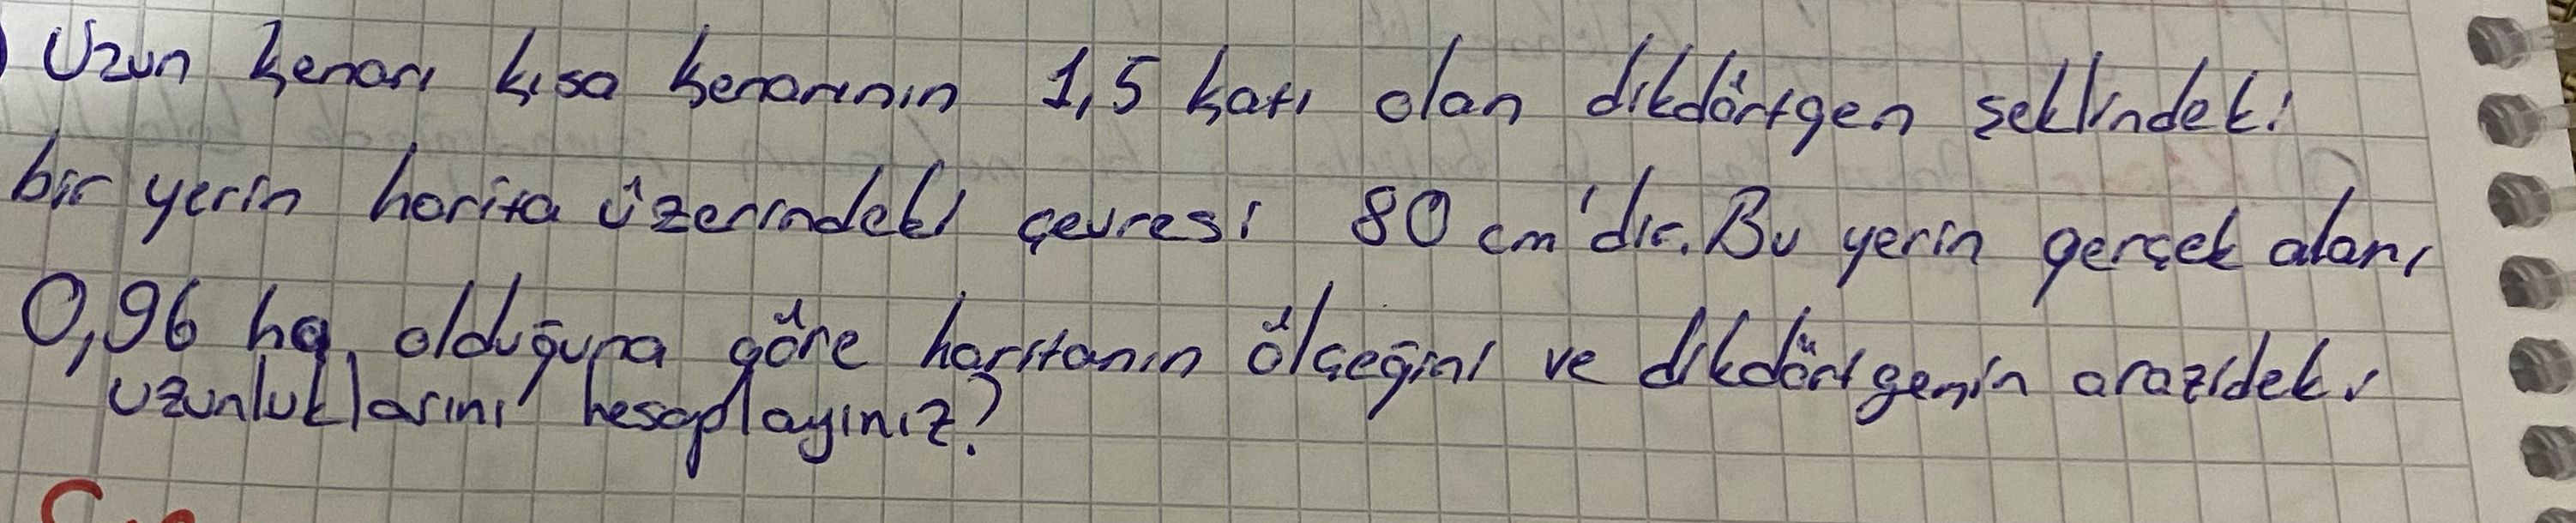 Uzun kenarı kısa kenarının 1,5 katı olan dikdörtgen şeklindeki
bir yerin harita üzerindeki çevresi 80 cm'dir. Bu yerin gerçek alanı
0,96 ha olduğuna göre haritanın ölçeğini ve dikdörtgenin arazideki
uzunluklarını hesaplayınız?